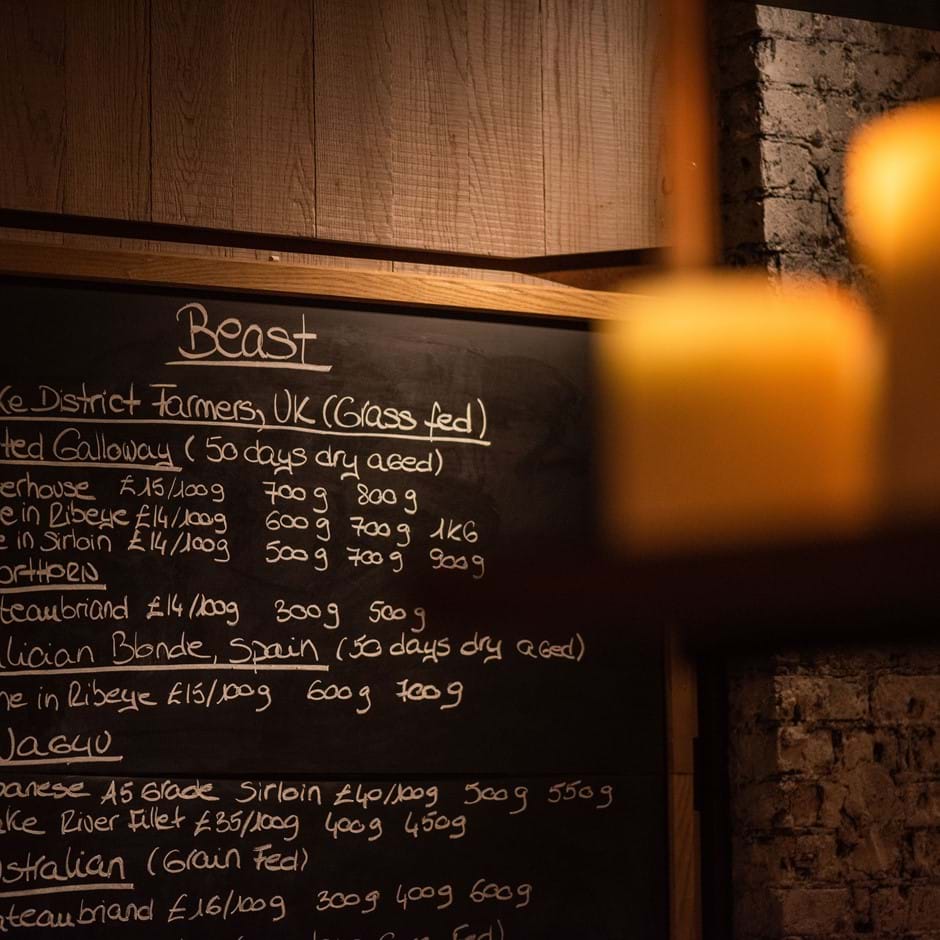 Beast
ke District Farmers, UK (Grass fed)
ted Galloway (50 days dry aged)
erhouse £15/100g 700g 800g
e in Ribeye £14/100g 600g 700g 1KG
e in Sirloin £14/100g 500g 700g 900g
ORTHORN
teaubriand £14/100g 300g 500g
lician Blonde, Spain (50 days dry aged)
ne in Ribeye £15/100g 600g 700g
WAGYU
panese A5 Grade Sirloin £40/100g 500g 550g
ake River Fillet £35/100g 400g 450g
stralian (Grain Fed)
ateaubriand £16/100g 300g 400g 600g
Fed)